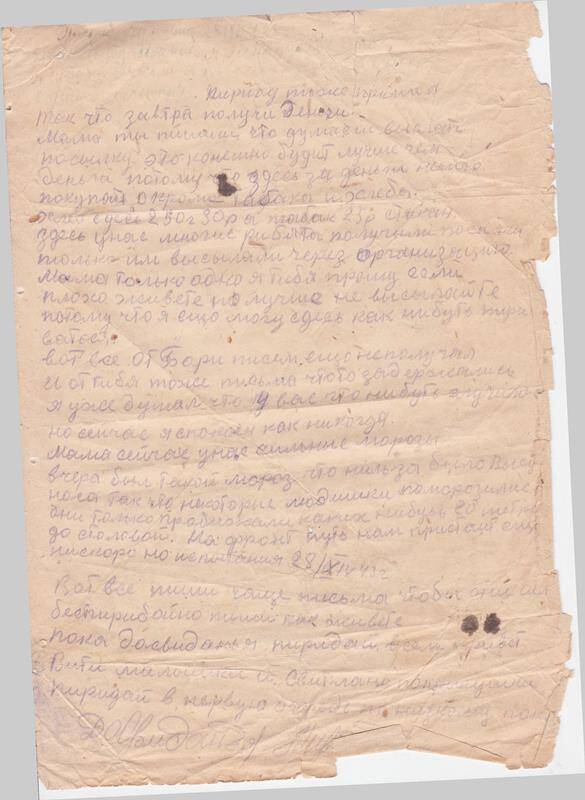 период тоже
так что завтра получи деньги.
Мама ты писала что думаеш выслат
посылку это конешно будит лучше чем
деньга потому что здесь за деньги нечего
покупат окроме табака и хлеба.
хлеб сдесь 250г 30р а табак 25р стакан
здесь унас многие рибята получили посилки
только им высылали через организацию
Мама только одно я тибя прошу если
плохо живете то лучше не высылайте
потому что я ещо могу сдесь как нибуть
ватся.
вот все От Бори писем ещо неполучал
и от тибя тоже письма чтото задержались
я уже думал что у вас что нибуть случило
но сейчас я спокоен как никогда.
Мама сейчас унас сильние морозы
вчера был такой мороз что нильзя было Высу
носа так что некоторие поморозилис
они только пробижали каких нибудь 20 метро
до столовой. На фронт путь нам ещо
ниского но
Вот все пиши чаще письма чтобы они
беспририбойно пиши как живете
пока Досвиданья пиридай всем привет
Вити и Свитлане
пиридай в первую
Досвидания